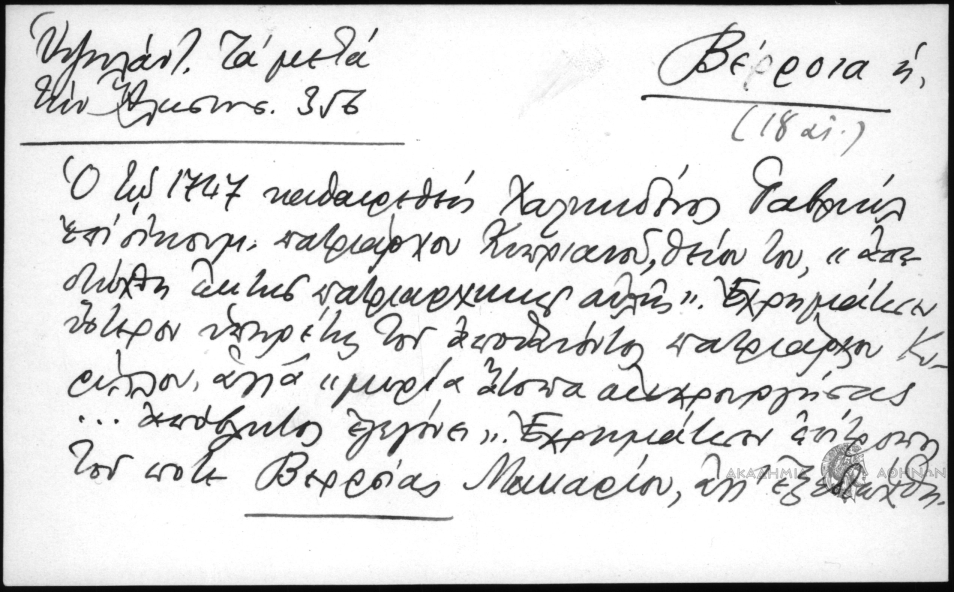 Ὑψηλάντ. Τά μετά
τήν Ἅλωσιν. 356
Βέρροια ἡ.
(18 αἰ.)
Ὁ τῷ 1747 καθαιρεθείς Χαλκηδόνος Γαβριήλ
ἐπί οἰκουμ. πατριάρχου Κυπριανοῦ, θείου του, «ἀπε
διώχθη ἐκ τῆς πατριαρχικῆς αὐλῆς». Ἐχρημάτισεν
ὕστερον ὑπηρέτης τοῦ ἀποθανόντος πατριάρχου Κυ-
ρίλλου, ἀλλά «μυρία ἄτοπα αἰσχρουργήσας
... ἀπόβλητος ἐγεγόνει». Ἐχρημάτισεν ἐπίτροπος
τοῦ ποτε Βερροίας Μακαρίου, ἀλλ' ἐξεδιώχθη.
ΑΚΑΔΗΜΙΑ ΑΘΗΝΩΝ